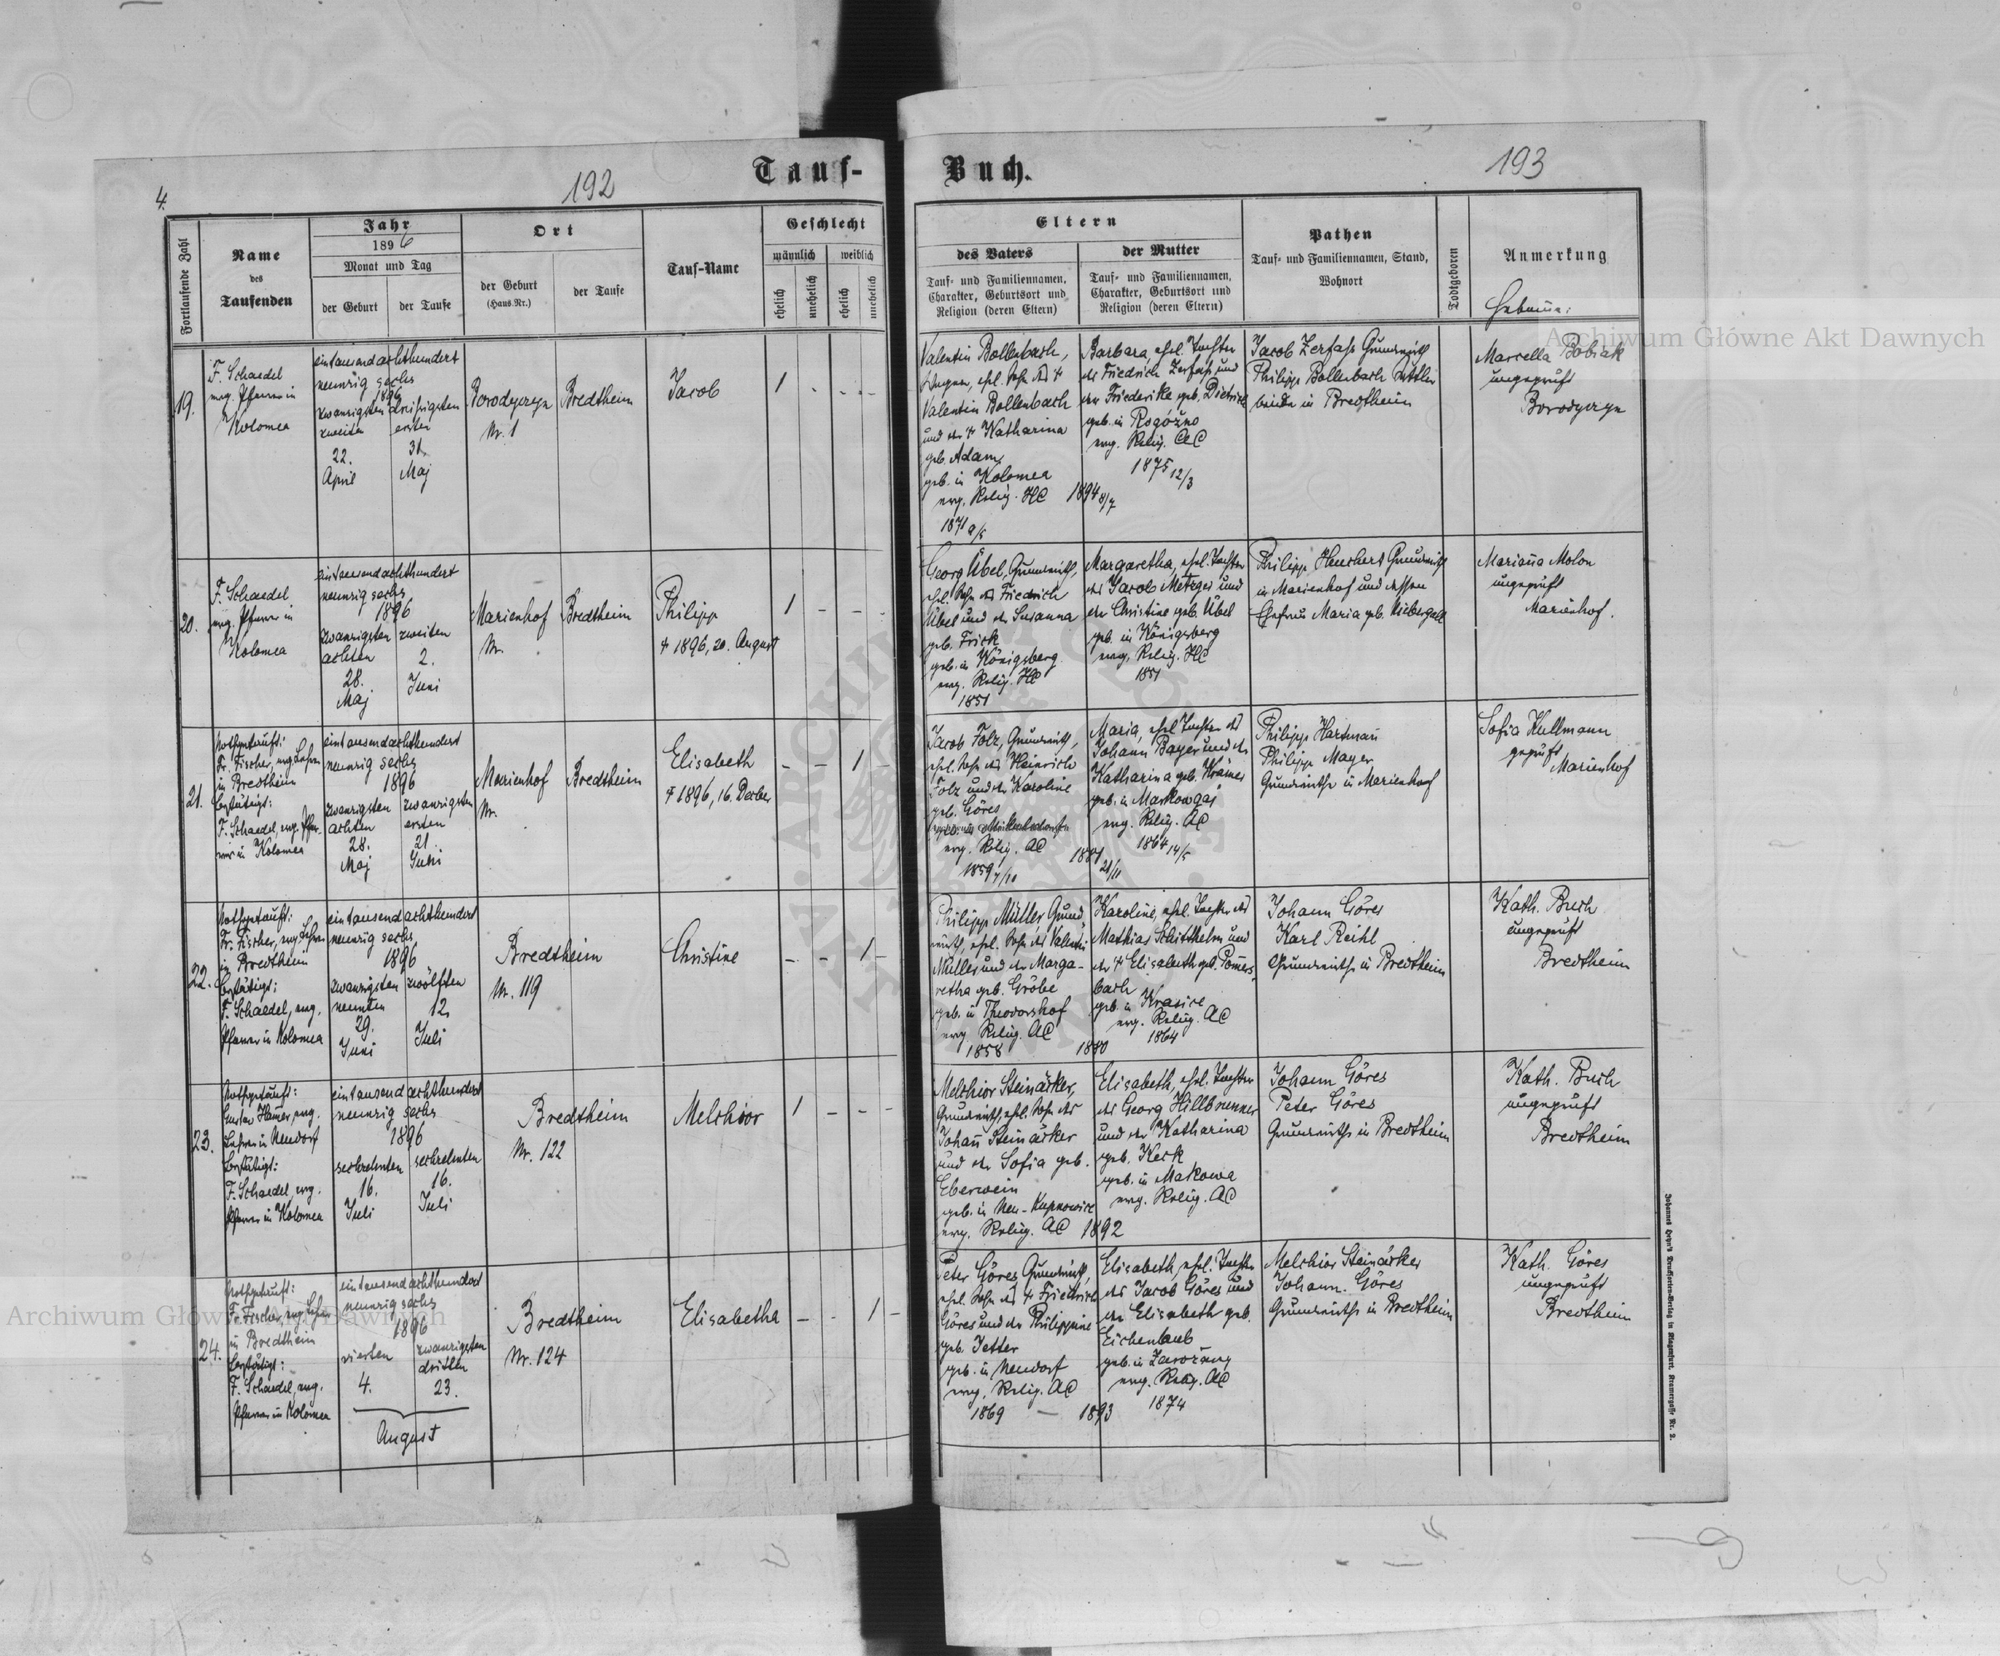 4.
192
Tauf-
Fortlaufende Zahl
Name
des
Taufenden
Jahr
1896
Monat und Tag
der Geburt
der Taufe
Ort
der Geburt
(Haus-Nr.)
der Taufe
Tauf-Name
Geschlecht
männlich
weiblich
ehelich
unehelich
ehelich
unehelich
19.
F. Schaedel
evg. Pfarrer in
Kolomea
eintausendachthundert
neunzig sechs
1896
zwanzigsten dreißigsten
zweiten ersten
22. 31.
April Maj
Borodyczyn
Nr. 1
Bredtheim
Jacob
1 - - -
20.
F. Schaedel
evg. Pfarrer in
Kolomea
eintausendachthundert
neunzig sechs
1896
zwanzigsten zweiten
achten 2.
28. Juni
Maj
Marienhof
Nr.
Bredtheim
Philipp
† 1896, 20. August
1 - - -
21.
Nothgetauft:
Fr. Fischer, evg. Lehrer
in Bredtheim
bestätigt:
F. Schaedel, evg. Pfar-
rer in Kolomea
eintausendachthundert
neunzig sechs
1896
zwanzigsten zwanzigsten
achten ersten
28. 21.
Maj Juni
Marienhof
Nr.
Bredtheim
Elisabeth
† 1896, 16. Dezber
- - 1 -
22.
Nothgetauft:
Fr. Fischer, evg. Lehrer
in Bredtheim
bestätigt:
F. Schaedel, evg.
Pfarrer in Kolomea
eintausend achthundert
neunzig sechs
1896
zwanzigsten zwölften
neunten 12.
29. Juli
Juni
Bredtheim
Nr. 119
Christine
- - 1 -
23.
Nothgetauft:
Gustav Hamer, evg.
Lehrer in Neudorf
bestätigt:
F. Schaedel, evg.
Pfarrer in Kolomea
eintausend achthundert
neunzig sechs
1896
sechzehnten sechzehnten
16. 16.
Juli Juli
Bredtheim
Nr. 122
Melchior
1 - - -
24.
Nothgetauft:
Fr. Fischer, evg. Lehrer
in Bredtheim
bestätigt:
F. Schaedel, evg.
Pfarrer in Kolomea
eintausend achthundert
neunzig sechs
1896
vierten zwanzigsten
dritten
4. 23.
August
Bredtheim
Nr. 124
Elisabetha
- - 1 -
Buch.
193
Eltern
des Vaters
Tauf- und Familiennamen,
Charakter, Geburtsort und
Religion (deren Eltern)
der Mutter
Tauf- und Familiennamen,
Charakter, Geburtsort und
Religion (deren Eltern)
Pathen
Tauf- und Familiennamen, Stand,
Wohnort
Todtgeboren
Anmerkung
Hebamme:
Valentin Bollenbach,
ehel. Sohn des †
Valentin Bollenbach
und der † Katharina
geb. Adam,
geb. in Kolomea
evg. Relig. HC
1871 9/5
1894 8/7
Barbara, ehel. Tochter
des Friedrich Zerfass und
der Friederike geb. Dietrich
geb. in Rogózno
evg. Relig. AC
1875 12/3
Jacob Zerfass Grundwirth
Philipp Bollenbach
beide in Bredtheim
Marcella Bobiak
ungeprüft
Borodyczyn
Georg Übel, Grundwirth,
ehel. Sohn des Friedrich
Übel und der Susanna
geb. Frick
geb. in Königsberg
evg. Relig. HC
1851
Margaretha, ehel. Tochter
des Jacob Metzger und
der Christine geb. Übel
geb. in Königsberg
evg. Relig. HC
1851
Philipp Heuchert Grundwirth
in Marienhof und dessen
Ehefrau Maria geb. Niebergall
Marianna Molon
ungeprüft
Marienhof.
Jacob Folz, Grundwirth,
ehel. Sohn des Heinrich
Folz und der Karoline
geb. Göres
evg. Relig. AC
1859 7/10
1881 21/11
Maria, ehel. Tochter des
Johann Bayer und der
Katharina geb. Krämer
geb. in Markowgaj
evg. Relig. AC
1864 14/5
Philipp Hartmann
Philipp Mayer
Grundwirthe in Marienhof
Sofia Kullmann
geprüft
Marienhof
Philipp Müller Grund-
wirth, ehel. Sohn des Valentin
Müller und der Marga-
retha geb. Gröbe
geb. in Theodorshof
evg. Relig. AC
1858
1880
Karoline, ehel. Tochter des
Mathias Schitthelm und
der † Elisabeth geb. Pomers-
bach
geb. in Krasice
evg. Relig. AC
1864
Johann Göres
Karl Reihl
Grundwirthe in Bredtheim
Kath. Buch
ungeprüft
Bredtheim
Melchior Steinärker,
Grundwirth, ehel. Sohn des
Johann Steinärker
und der Sofia geb.
Eberwein
geb. in Neu-Kupnowice
evg. Relig. AC 1892
Elisabeth, ehel. Tochter
des Georg Hillbrunner
und der Katharina
geb. Keck
geb. in Makowa
evg. Relig. AC
Johann Göres
Peter Göres
Grundwirthe in Bredtheim
Kath. Buch
ungeprüft
Bredtheim
Peter Göres, Grundwirth,
ehel. Sohn des † Friedrich
Göres und der Philippine
geb. Jetter
geb. in Neudorf
evg. Relig. AC
1869 — 1893
Elisabeth, ehel. Tochter
des Jacob Göres und
der Elisabeth geb.
Eichenlaub
geb. in Zarozany
evg. Relig. AC
1874
Melchior Steinärker
Johann Göres
Grundwirthe in Bredtheim
Kath. Göres
ungeprüft
Bredtheim
Archiwum Główne Akt Dawnych
Archiwum Główne Akt Dawnych